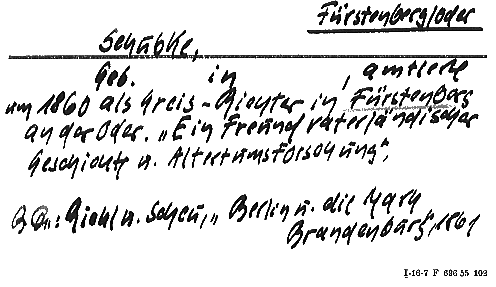 Fürstenberg/Oder
Schübke,
Geb. in , amtierte
um 1860 als Kreis-Richter in Fürstenberg
an der Oder. „Ein Freund vaterländischer
Geschichte u. Altertumsforschung",
Riehl u. Scheu, „Berlin u. die Mark
Brandenburg", 1861
I-16-7 F 696 55 102